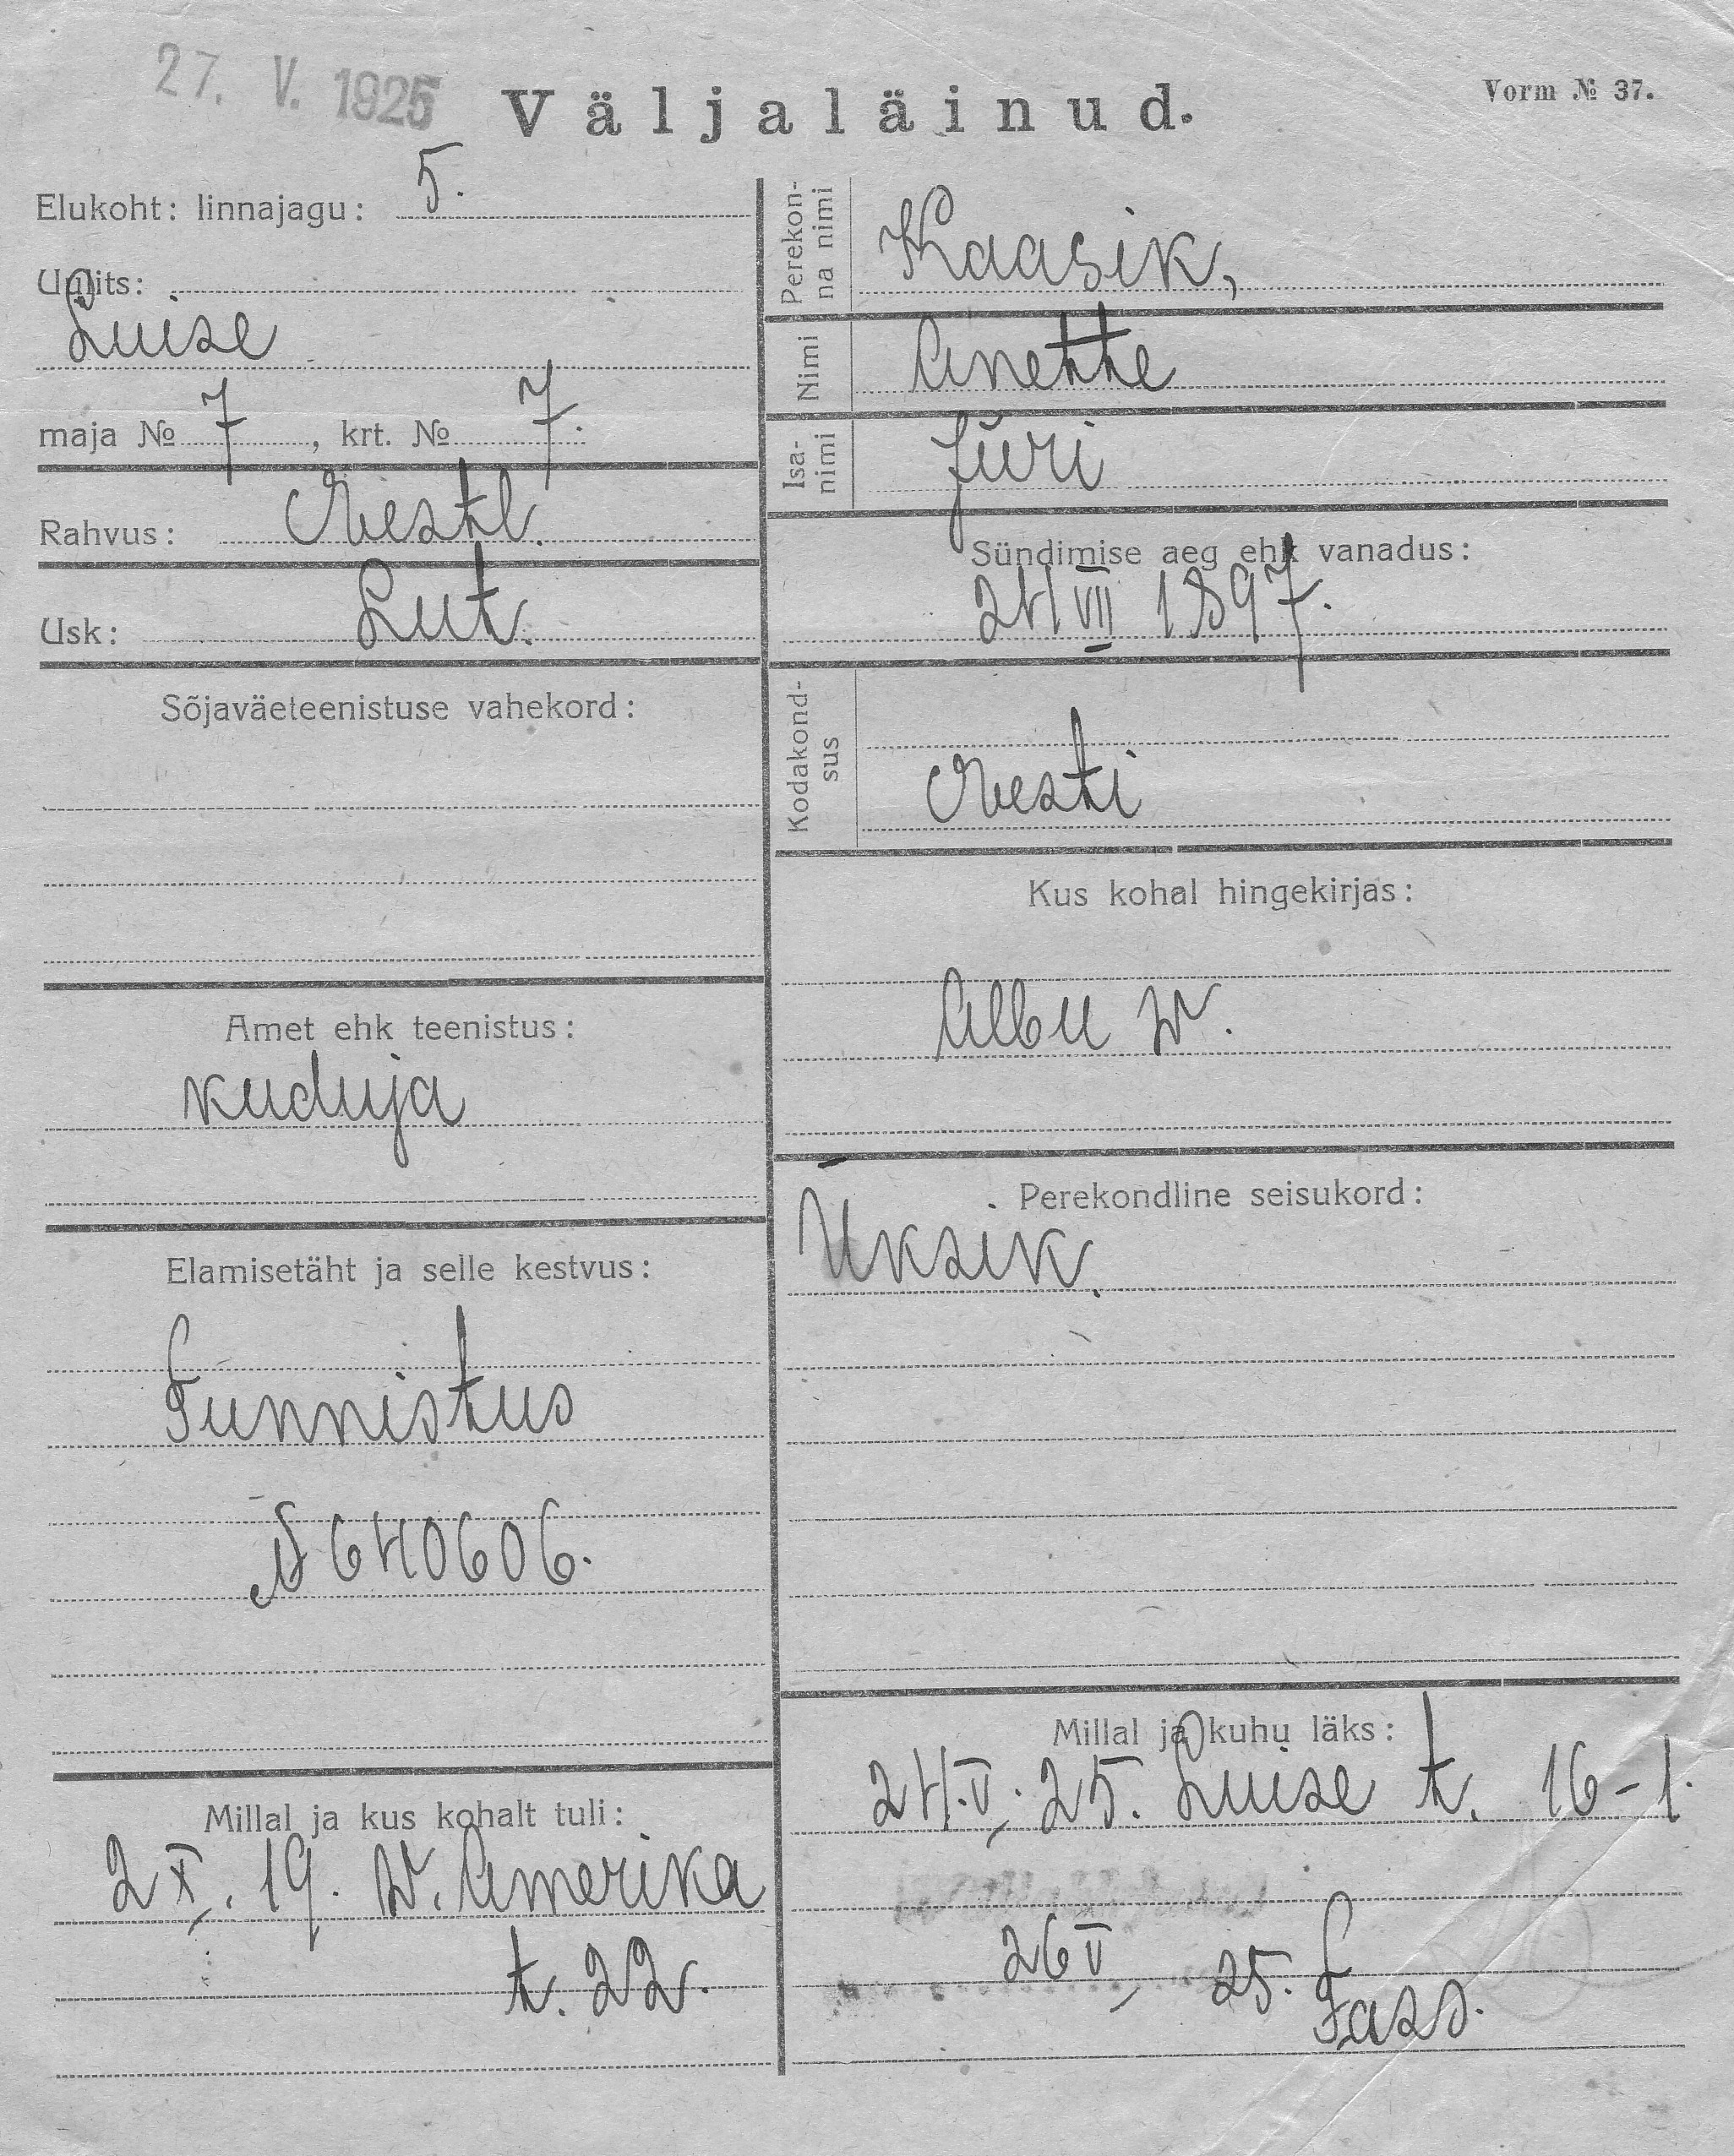 27. V. 1925
Väljaläinud.
Vorm № 37.
Elukoht: linnajagu: 5.
Uulits:
Luise
maja № 7, krt. № 7.
Rahvus: Eestl.
Usk: Lut.
Sõjaväeteenistuse vahekord:
Amet ehk teenistus:
kuduja
Elamisetäht ja selle kestvus:
Tunnistus
№ 640606.
Millal ja kus kohalt tuli:
2 X. 19. W. Amerika
t. 22.
Perekonna nimi
Kaasik,
Nimi
Anette
Isanimi
Jüri
Sündimise aeg ehk vanadus:
24 VII 1897.
Kodakondsus
Eesti
Kus kohal hingekirjas:
Albu w.
Perekondline seisukord:
Üksik.
Millal ja kuhu läks:
24. V. 25. Luise t. 16-1.
26 V 25.